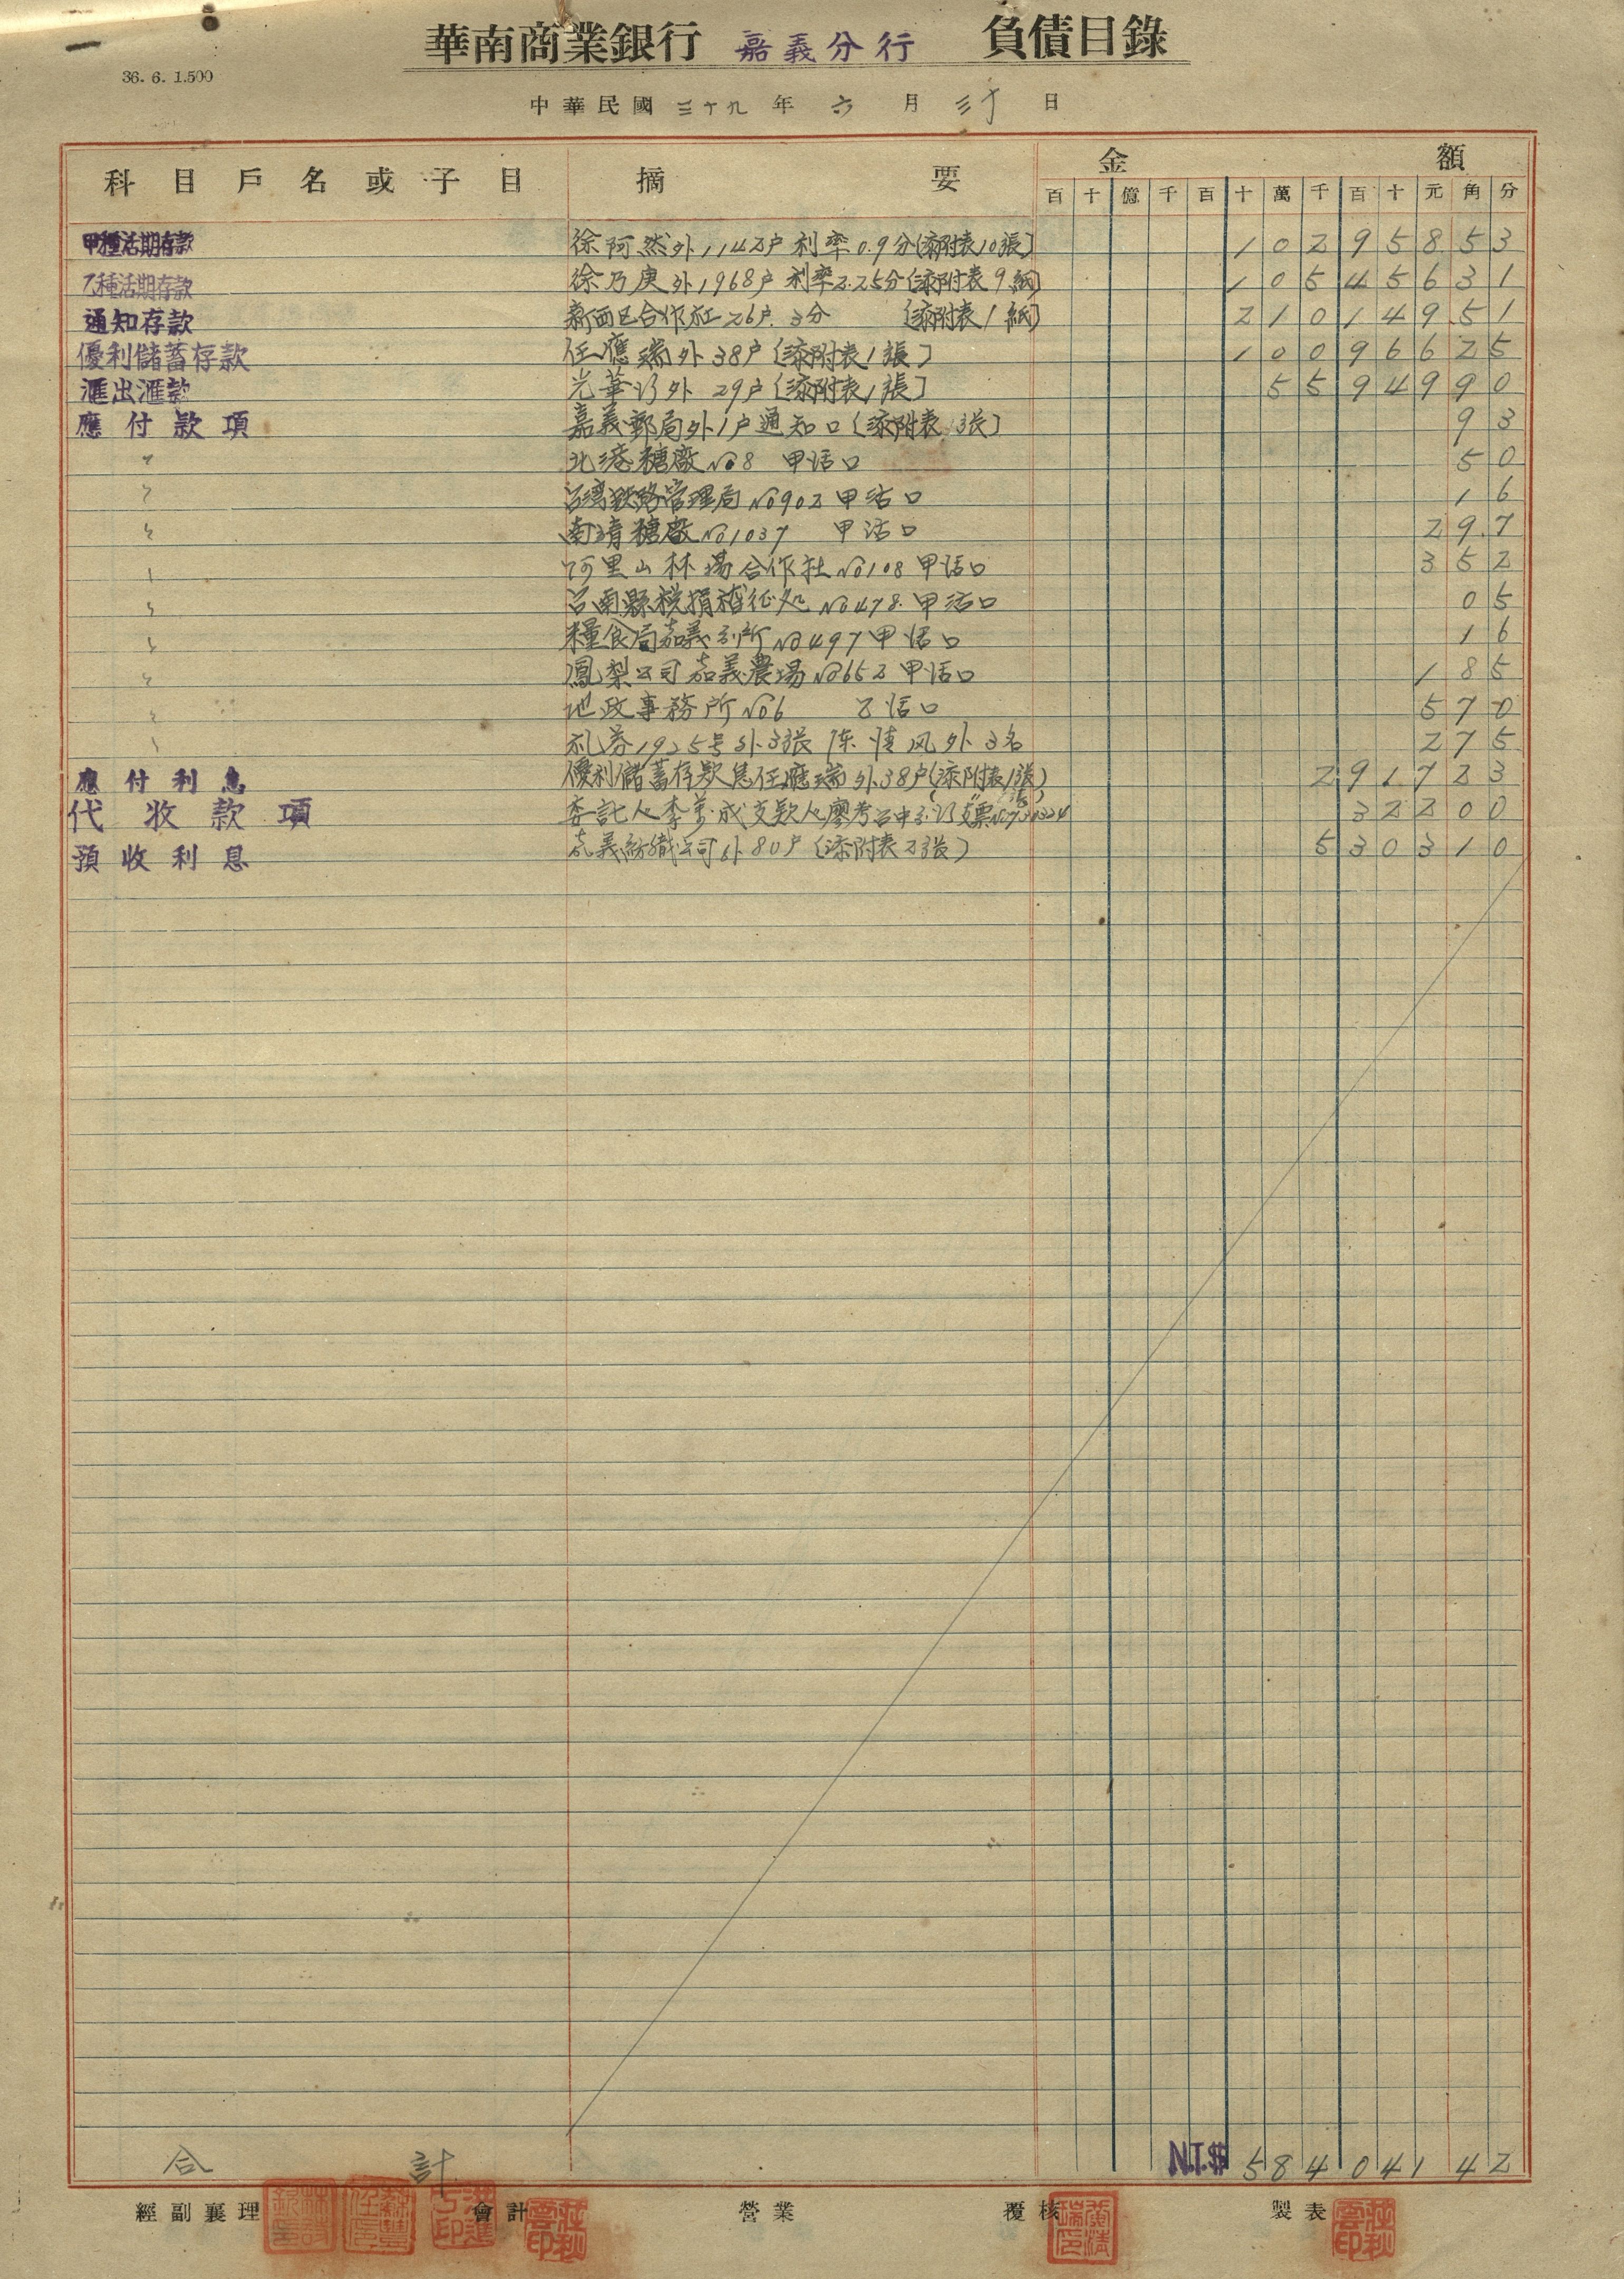 華南商業銀行 嘉義分行 負債目錄
36. 6. 1.500
中華民國三十九年六月三十日
科目戶名或子目 摘要 金額
百 十 億 千 百 十 萬 千 百 十 元 角 分
甲種活期存款 徐阿然外1142户 利率0.9分(添附表10張) 10295853
乙種活期存款 徐乃庚外1968户 利率2.25分(添附表9紙) 10545631
通知存款 新西区合作社26户 3分 (添附表1紙) 21014951
優利儲蓄存款 任應瑞外38户(添附表1張) 10096625
滙出滙款 光華行外29户(添附表1張) 5594990
應付款項 嘉義郵局外1户通知口(添附表3張) 93
〃 北港糖廠No8 甲活口 50
〃 台湾鉄路管理局No902 甲活口 16
〃 南靖糖廠No1037 甲活口 297
〃 阿里山林場合作社No108 甲活口 352
〃 台南縣税捐稽征処No478. 甲活口 05
〃 糧食局嘉義分所No497 甲活口 16
〃 鳳梨公司嘉義農場No652 甲活口 185
〃 地政事務所No6 乙活口 570
〃 1925号外3張 陈 风外3名 275
應付利息 優利儲蓄存款息任應瑞外38户(添附表1張) 291723
代收款項 委託人李 成支款人廖 台中 支票 32200
預收利息 嘉義紡織公司外80户(添附表2張) 530310
合計 NT$ 58404142
經副襄理 會計 營業 覆核 製表